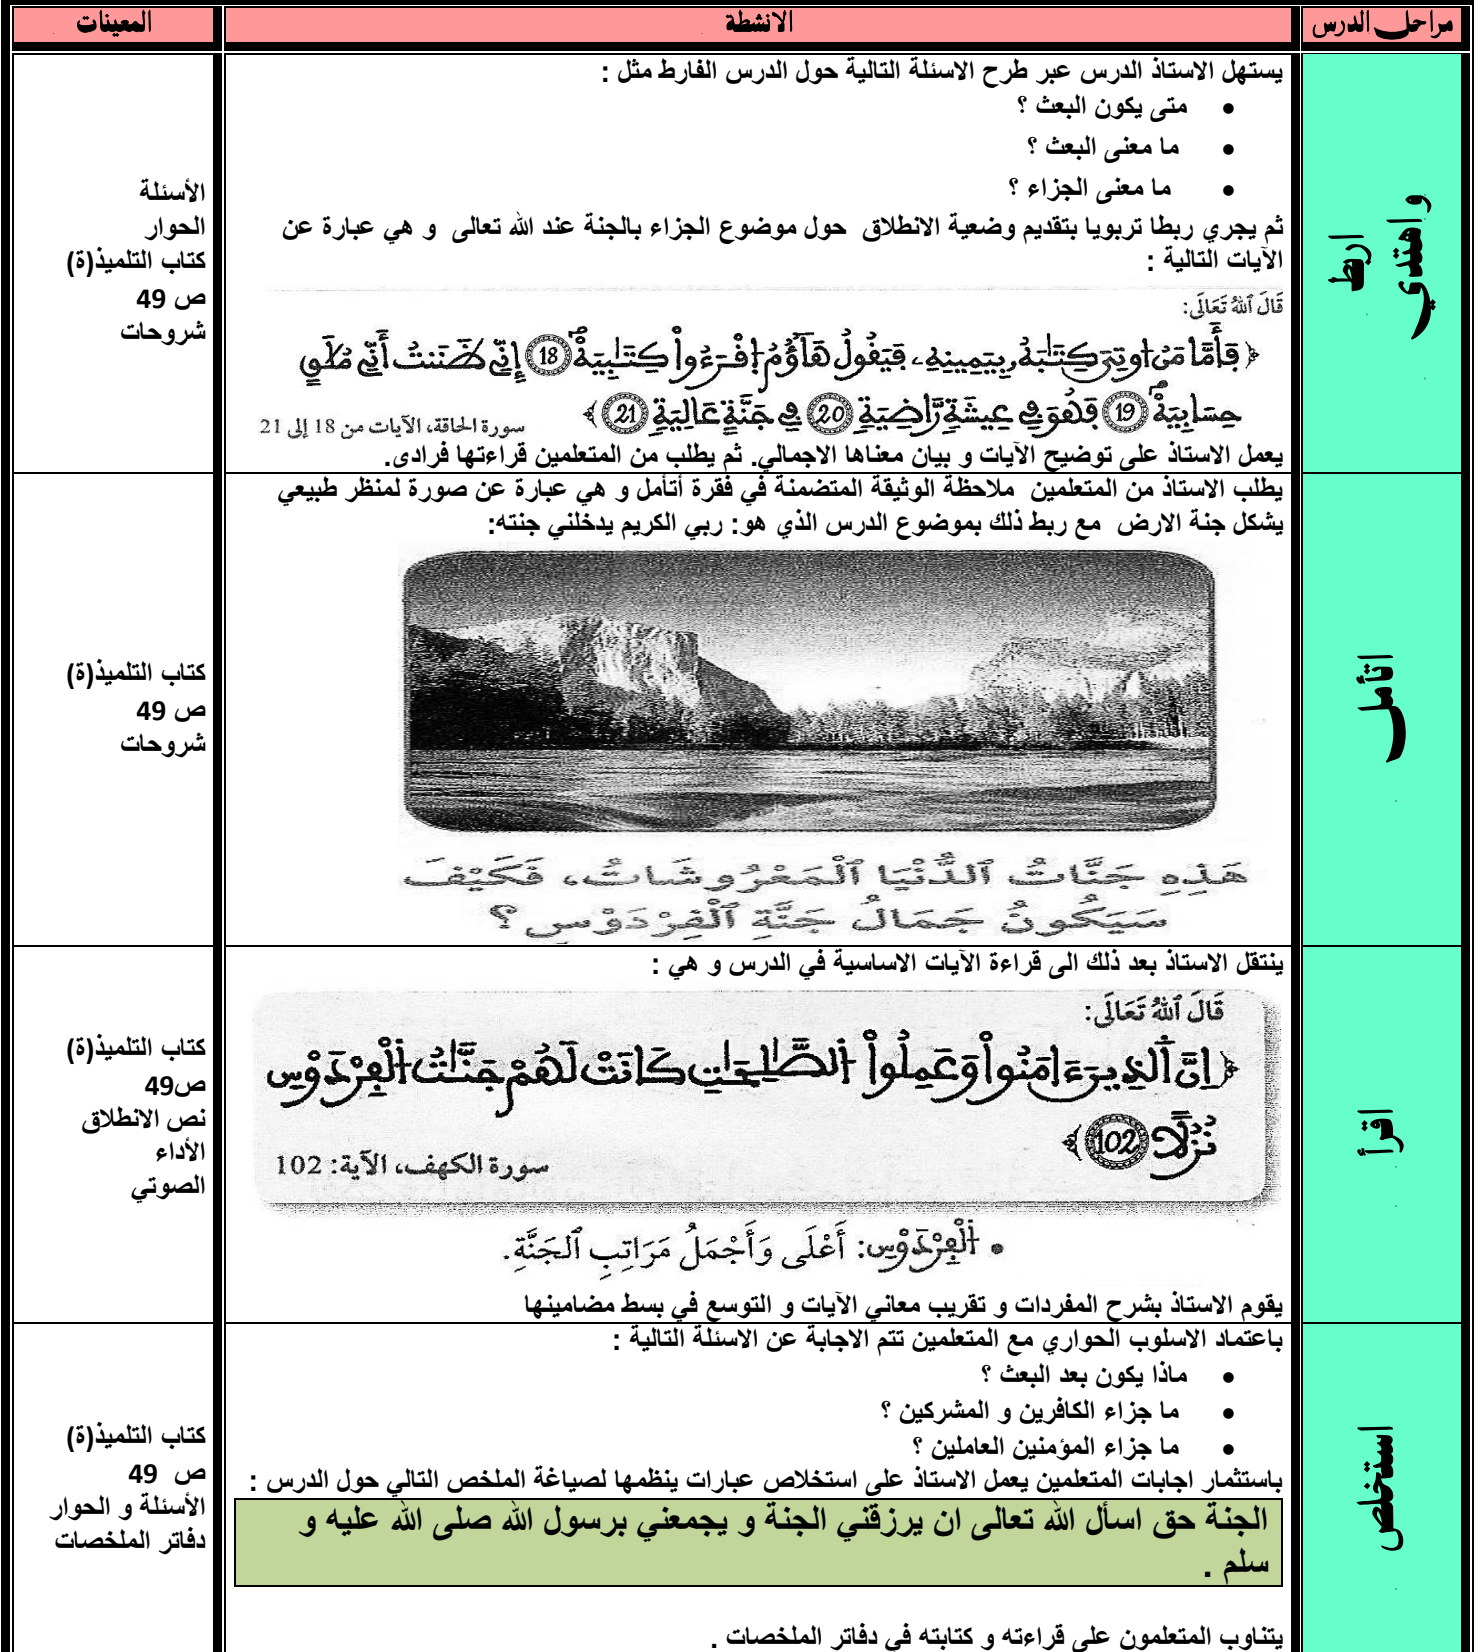 مراحل الدرس
الانشطة
المعينات
اربط
و اهتدي
يستهل الاستاذ الدرس عبر طرح الاسئلة التالية حول الدرس الفارط مثل :
• متى يكون البعث ؟
• ما معنى البعث ؟
• ما معنى الجزاء ؟
ثم يجري ربطا تربويا بتقديم وضعية الانطلاق حول موضوع الجزاء بالجنة عند الله تعالى و هي عبارة عن
الآيات التالية :
قَالَ ٱللَّهُ تَعَالَى:
﴿ فَأَمَّا مَنُ اوتِيَ كِتَٰبَهُۥ بِيَمِينِهِۦ فَيَقُولُ هَآؤُمُ اُ۪قْرَءُواْ كِتَٰبِيَهْۖ (18) إِنِّے ظَنَنتُ أَنِّے مُلَٰقٍ
حِسَابِيَهْۖ (19) فَهُوَ فِے عِيشَةٖ رَّاضِيَةٖ (20) فِے جَنَّةٍ عَالِيَةٖ (21) ﴾
سورة الحاقة، الآيات من 18 إلى 21
يعمل الاستاذ على توضيح الآيات و بيان معناها الاجمالي. ثم يطلب من المتعلمين قراءتها فرادى.
الأسئلة
الحوار
كتاب التلميذ(ة)
ص 49
شروحات
اتأمل
يطلب الاستاذ من المتعلمين ملاحظة الوثيقة المتضمنة في فقرة أتأمل و هي عبارة عن صورة لمنظر طبيعي
يشكل جنة الارض مع ربط ذلك بموضوع الدرس الذي هو: ربي الكريم يدخلني جنته:
هَذِهِ جَنَّاتُ ٱلدُّنْيَا ٱلْمَعْرُوشَاتُ، فَكَيْفَ
سَيَكُونُ جَمَالُ جَنَّةِ ٱلْفِرْدَوْسِ ؟
كتاب التلميذ(ة)
ص 49
شروحات
اقرأ
ينتقل الاستاذ بعد ذلك الى قراءة الآيات الاساسية في الدرس و هي :
قَالَ ٱللَّهُ تَعَالَى:
﴿ إِنَّ ٱلذِينَ ءَامَنُواْ وَعَمِلُواْ ٱلصَّٰلِحَٰتِ كَانَتْ لَهُمْ جَنَّٰتُ ٱلْفِرْدَوْسِ
نُزُلًا (102) ﴾
سورة الكهف، الآية: 102
• ٱلْفِرْدَوْسِ: أَعْلَى وَأَجْمَلُ مَرَاتِبِ ٱلجَنَّةِ.
يقوم الاستاذ بشرح المفردات و تقريب معاني الآيات و التوسع في بسط مضامينها
كتاب التلميذ(ة)
ص49
نص الانطلاق
الأداء
الصوتي
استخلص
باعتماد الاسلوب الحواري مع المتعلمين تتم الاجابة عن الاسئلة التالية :
• ماذا يكون بعد البعث ؟
• ما جزاء الكافرين و المشركين ؟
• ما جزاء المؤمنين العاملين ؟
باستثمار اجابات المتعلمين يعمل الاستاذ على استخلاص عبارات ينظمها لصياغة الملخص التالي حول الدرس :
الجنة حق اسأل الله تعالى ان يرزقني الجنة و يجمعني برسول الله صلى الله عليه و
سلم .
يتناوب المتعلمون على قراءته و كتابته في دفاتر الملخصات .
كتاب التلميذ(ة)
ص 49
الأسئلة و الحوار
دفاتر الملخصات